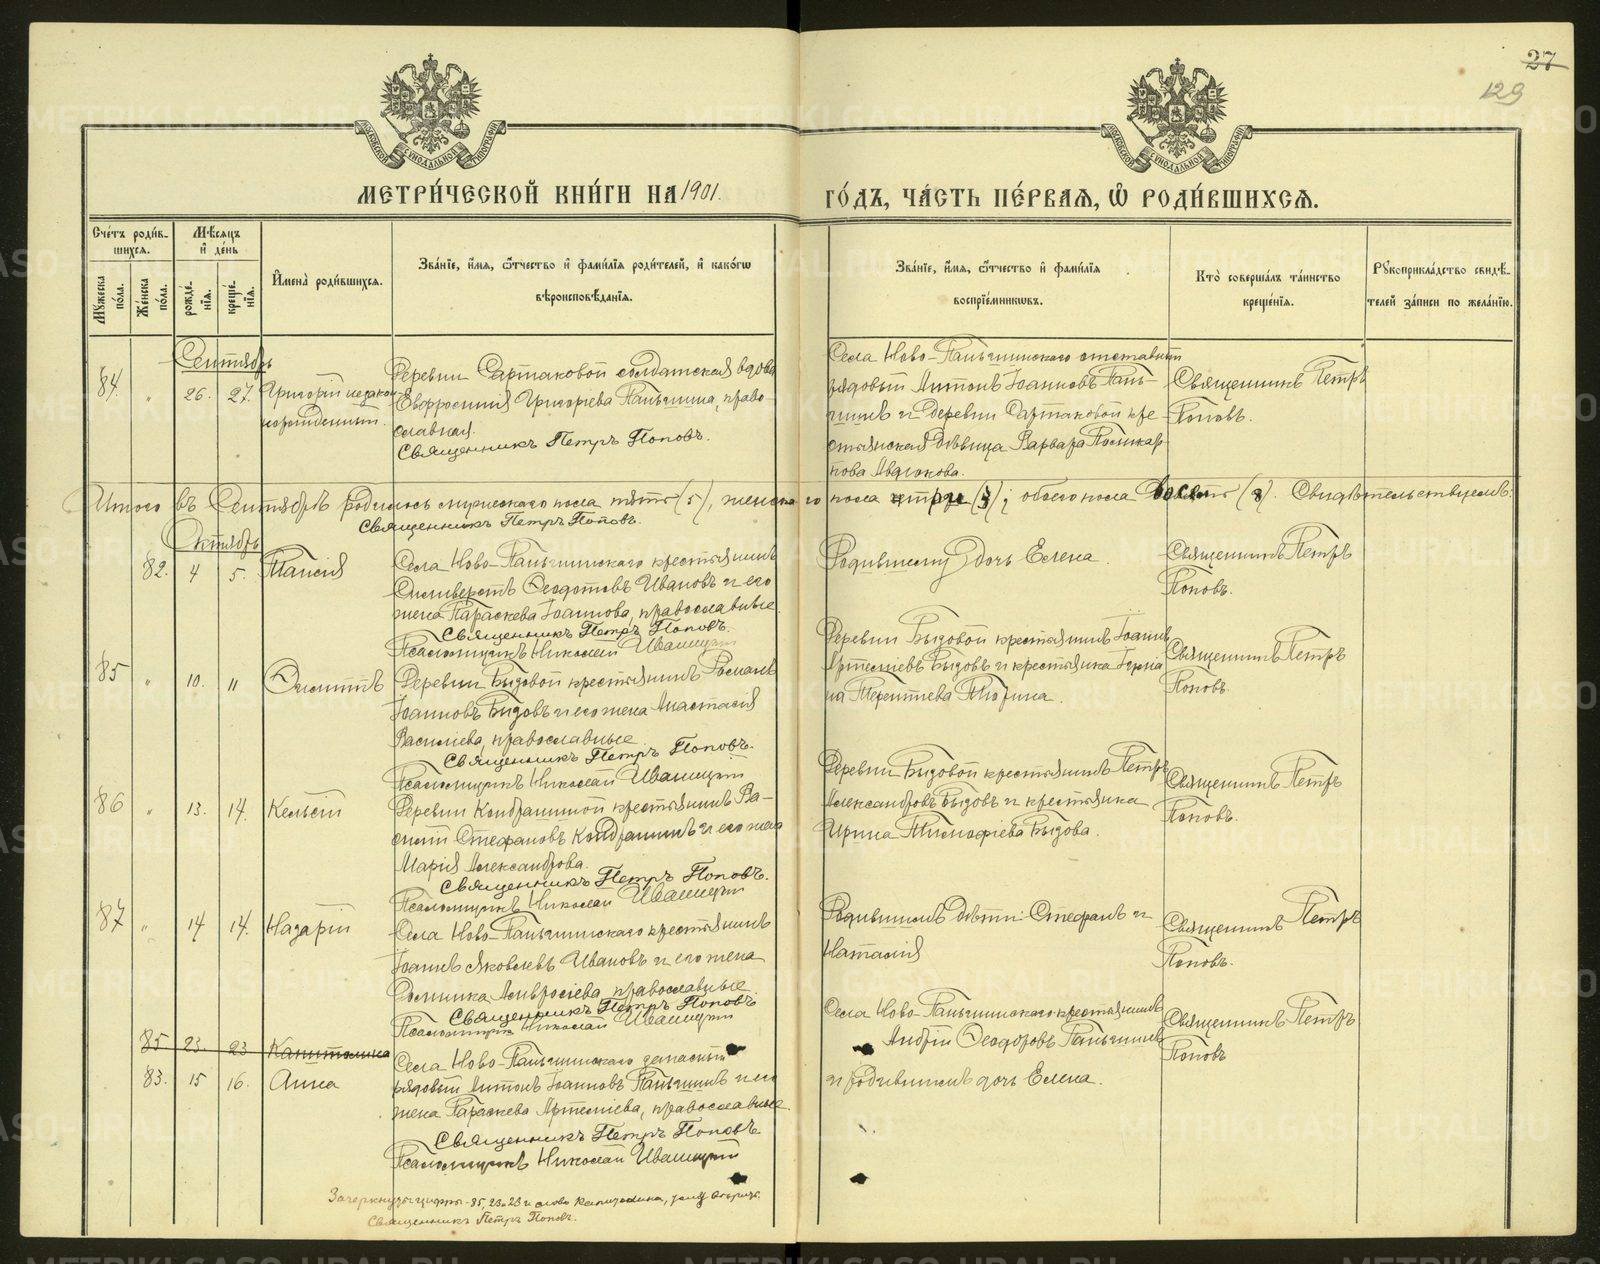 27
129
МОСКОВСКОЙ СѴНОДАЛЬНОЙ ТИПОГРАФІИ
МОСКОВСКОЙ СѴНОДАЛЬНОЙ ТИПОГРАФІИ
МЕТРИ́ЧЕСКОЙ КНИ́ГИ НА 1901.
ГО́ДЪ, ЧА́СТЬ ПЕ́РВАЯ, Ѡ҆ РОДИ́ВШИХСЯ.
Сче́тъ роди́в-
шихся.
Мꙋ́жеска по́ла.
Же́нска по́ла.
Мѣ́сяцъ
и҆ де́нь
рожде́-
нїя.
креще́-
нїя.
И҆мена̀ роди́вшихся.
Зва́нїе, и҆́мя, ѻ҆́тчество и҆ фами́лїя роди́телей, и҆ како́гѡ
вѣроисповѣ́данїя.
Зва́нїе, и҆́мя, ѻ҆́тчество и҆ фами́лїя
воспрїе́мникѡвъ.
Кто̀ соверша́лъ та́инство
креще́нїя.
Рꙋкоприкла́дство свидѣ́-
телей за́писи по жела́нїю.
Сентябрь
84. „ 26. 27. Григорій незакон-
норожденный.
Деревни Сартаковой солдатская вдова
Евфросинія Григорьева Паньшина, право-
славная.
Священникъ Петръ Поповъ.
Села Ново-Паньшинскаго отставный
рядовый Антонъ Іоанновъ Пань-
шинъ и деревни Сартаковой кре-
стьянская дѣвица Варвара Поликар-
пова
Священникъ Петръ
Поповъ.
Итого въ Сентябрѣ родилось мужескаго пола пять (5), женскаго пола три (3); обоего пола восемь (8). Свидѣтельствуемъ:
Священникъ Петръ Поповъ.
Октябрь
82. 4 5. Таисія
Села Ново-Паньшинскаго крестьянинъ
Силиверстъ Ѳеодотовъ Ивановъ и его
жена Параскева Іоаннова, православные
Священникъ Петръ Поповъ.
Псаломщикъ Николай
дочь Елена.
Священникъ Петръ
Поповъ.
85 „ 10. 11
Деревни Быдовой крестьянинъ Романъ
Іоанновъ Быдовъ и его жена Анастасія
Василіева, православные
Священникъ Петръ Поповъ.
Псаломщикъ Николай
Деревни Быдовой крестьянинъ Іоаннъ
Артеміевъ Быдовъ и крестьянка
Терентіева
Священникъ Петръ
Поповъ.
86 „ 13. 14. Кельсій
Деревни Кондрашиной крестьянинъ Ва-
силій Стефановъ Кондрашинъ и его жена
Марія Александрова.
Священникъ Петръ Поповъ.
Псаломщикъ Николай
Деревни Быдовой крестьянинъ Петръ
Александровъ Быдовъ и крестьянка
Ирина Тимофіева Быдова.
Священникъ Петръ
Поповъ.
87 „ 14 14. Назарій
Села Ново-Паньшинскаго крестьянинъ
Іоаннъ Яковлевъ Ивановъ и его жена
Домника Амвросіева православные
Священникъ Петръ Поповъ.
Псаломщикъ Николай
Родившимъ дѣти: Стефанъ и
Наталія
Священникъ Петръ
Поповъ.
85 23. 23 Капитолина
83. 15 16. Анна
Села Ново-Паньшинскаго запасный
рядовый Антонъ Іоанновъ Паньшинъ и его
жена Параскева Артеміева, православные.
Священникъ Петръ Поповъ
Псаломщикъ Николай
Села Ново-Паньшинскаго крестьянинъ
Андрій Ѳеодоровъ Паньшинъ
и родившимъ дочь Елена.
Священникъ Петръ
Поповъ
Зачеркнуты цифры 85, 23 и 23 и слово Капитолина,
Священникъ Петръ Поповъ.
METRIKI.GASO-URAL.RU